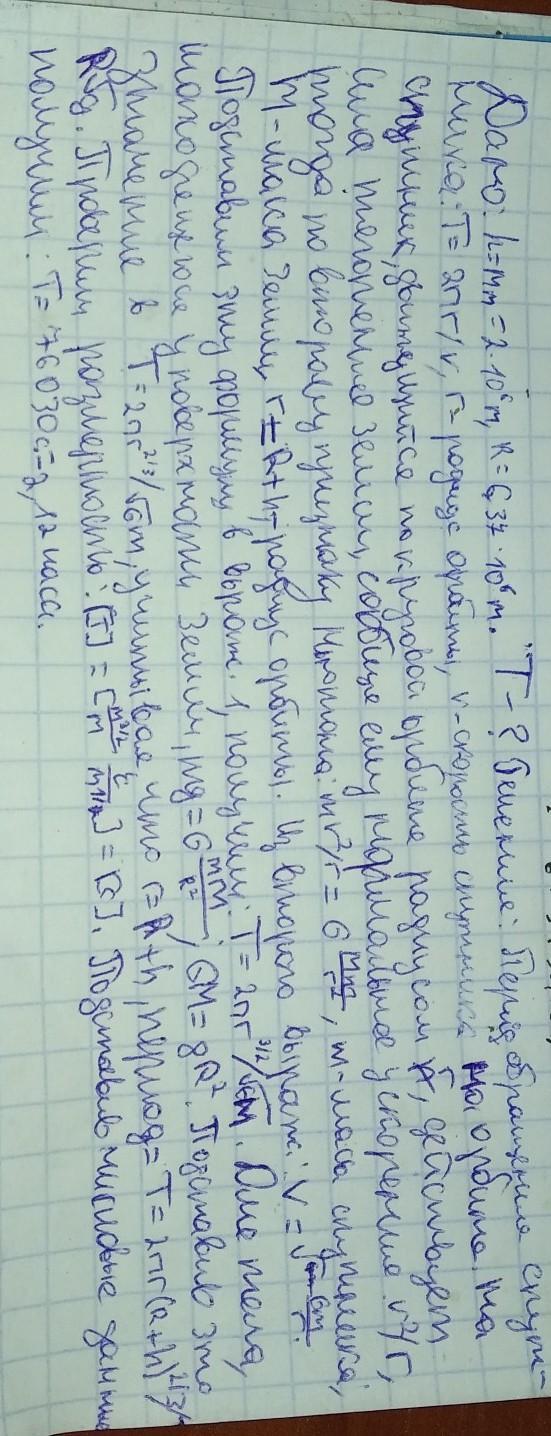 Дано: h=Mm=2·10⁶m, R=6,37·10⁶m. T-? Решение: Период обращения спут-
ника: T=2πr/v, r=радиус орбиты, v-скорость спутника на орбите. На
спутник, движущийся по круговой орбите радиусом R, действует
сила тяготения Земли, сообщ ему нормальное ускорение v²/r,
тогда по второму Ньютона: mv²/r=G Mm/r², m-масса спутника,
M-масса Земли, r=R+h-радиус орбиты. Из второго выраж: V=√Gm/r.
Подставим эту формулу в выраж. 1, получим: T=2πr³/²/√GM. Для тела,
находящегося у поверхности Земли, mg=G mM/R², GM=gR². Подставив это
значение в T=2πr²/³/√Gm, учитывая что r=R+h, период= T=2πr(R+h)²/³/
R√g. Проверим размерность: [T]=[m³/²/m t/m¹/²]=[c]. Подставив числовые данные
получим: T=76030c=2,12 часа.